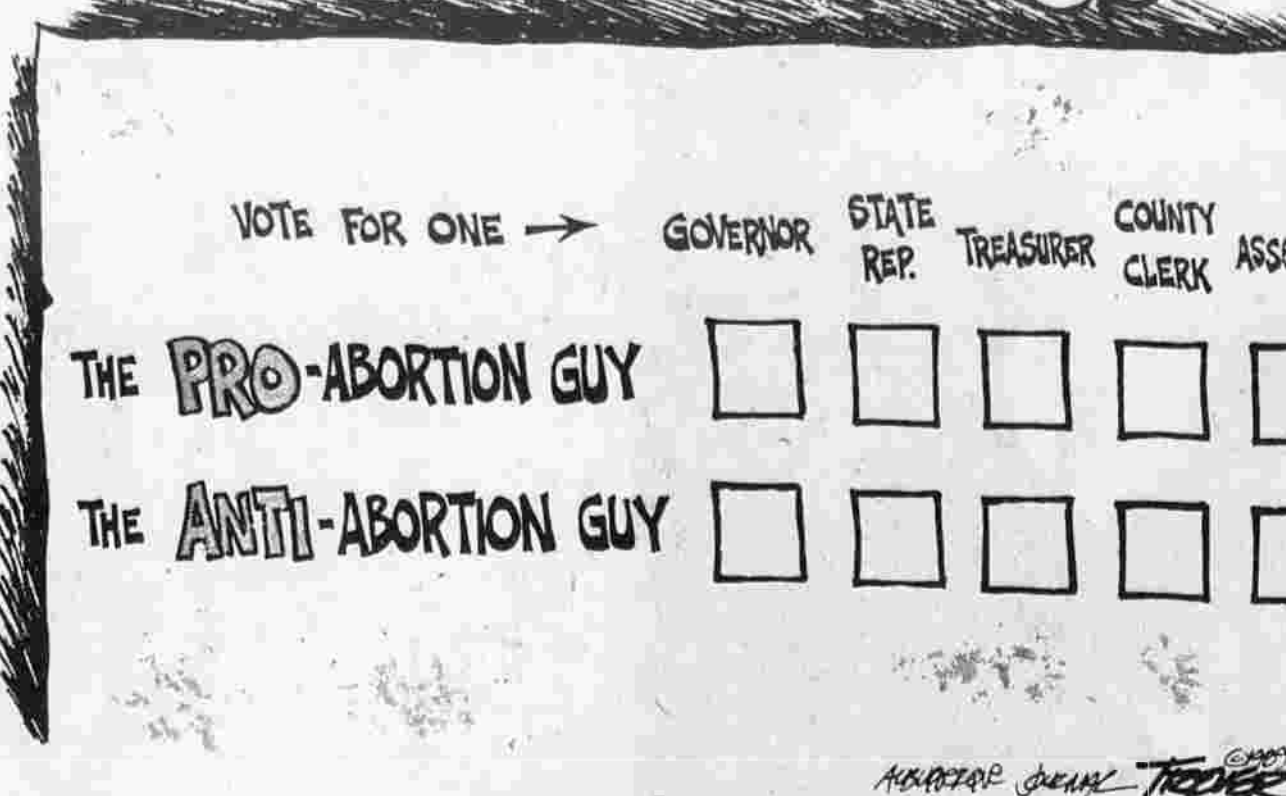 VOTE FOR ONE → GOVERNOR STATE REP. TREASURER COUNTY CLERK
THE PRO-ABORTION GUY
THE ANTI-ABORTION GUY
ALBUQUERQUE JOURNAL TREVER